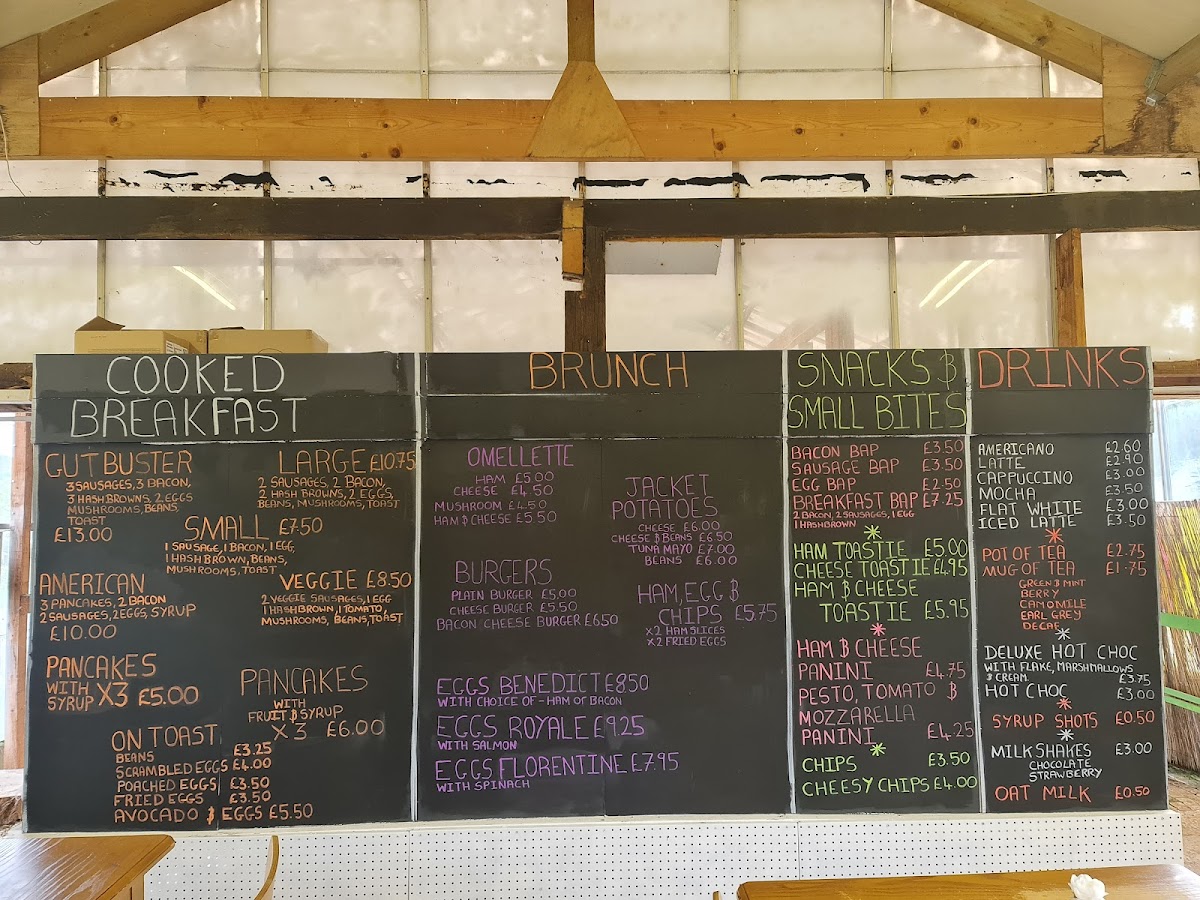 COOKED
BREAKFAST
GUTBUSTER
3 SAUSAGES, 3 BACON,
3 HASH BROWNS, 2 EGGS
MUSHROOMS, BEANS,
TOAST
£13.00
LARGE £10.75
2 SAUSAGES, 2 BACON,
2 HASH BROWNS, 2 EGGS,
BEANS, MUSHROOMS, TOAST
SMALL £7.50
1 SAUSAGE, 1 BACON, 1 EGG,
1 HASH BROWN, BEANS,
MUSHROOMS, TOAST
AMERICAN
3 PANCAKES, 2 BACON
2 SAUSAGES, 2 EGGS, SYRUP
£10.00
VEGGIE £8.50
2 VEGGIE SAUSAGES, 1 EGG
1 HASHBROWN, 1 TOMATO,
MUSHROOMS, BEANS, TOAST
PANCAKES
WITH
SYRUP X3 £5.00
PANCAKES
WITH
FRUIT & SYRUP
X3 £6.00
ON TOAST
BEANS £3.25
SCRAMBLED EGGS £4.00
POACHED EGGS £3.50
FRIED EGGS £3.50
AVOCADO & EGGS £5.50
BRUNCH
OMELLETTE
HAM £5.00
CHEESE £4.50
MUSHROOM £4.50
HAM & CHEESE £5.50
BURGERS
PLAIN BURGER £5.00
CHEESE BURGER £5.50
BACON CHEESE BURGER £6.50
JACKET
POTATOES
CHEESE £6.00
CHEESE & BEANS £6.50
TUNA MAYO £7.00
BEANS £6.00
HAM, EGG &
CHIPS £5.75
X2 HAM SLICES
X2 FRIED EGGS
EGGS BENEDICT £8.50
WITH CHOICE OF - HAM OR BACON
EGGS ROYALE £9.25
WITH SALMON
EGGS FLORENTINE £7.95
WITH SPINACH
SNACKS &
SMALL BITES
BACON BAP £3.50
SAUSAGE BAP £3.50
EGG BAP £2.50
BREAKFAST BAP £7.25
2 BACON, 2 SAUSAGES, 1 EGG
1 HASHBROWN
HAM TOASTIE £5.00
CHEESE TOASTIE £4.95
HAM & CHEESE
TOASTIE £5.95
HAM & CHEESE
PANINI £4.75
PESTO, TOMATO &
MOZZARELLA
PANINI £4.25
CHIPS £3.50
CHEESY CHIPS £4.00
DRINKS
AMERICANO £2.60
LATTE £2.90
CAPPUCCINO £3.00
MOCHA £3.50
FLAT WHITE £3.00
ICED LATTE £3.50
POT OF TEA £2.75
MUG OF TEA £1.75
GREEN & MINT
BERRY
CAMOMILE
EARL GREY
DECAF
DELUXE HOT CHOC
WITH FLAKE, MARSHMALLOWS
& CREAM £3.75
HOT CHOC £3.00
SYRUP SHOTS £0.50
MILKSHAKES £3.00
CHOCOLATE
STRAWBERRY
OAT MILK £0.50